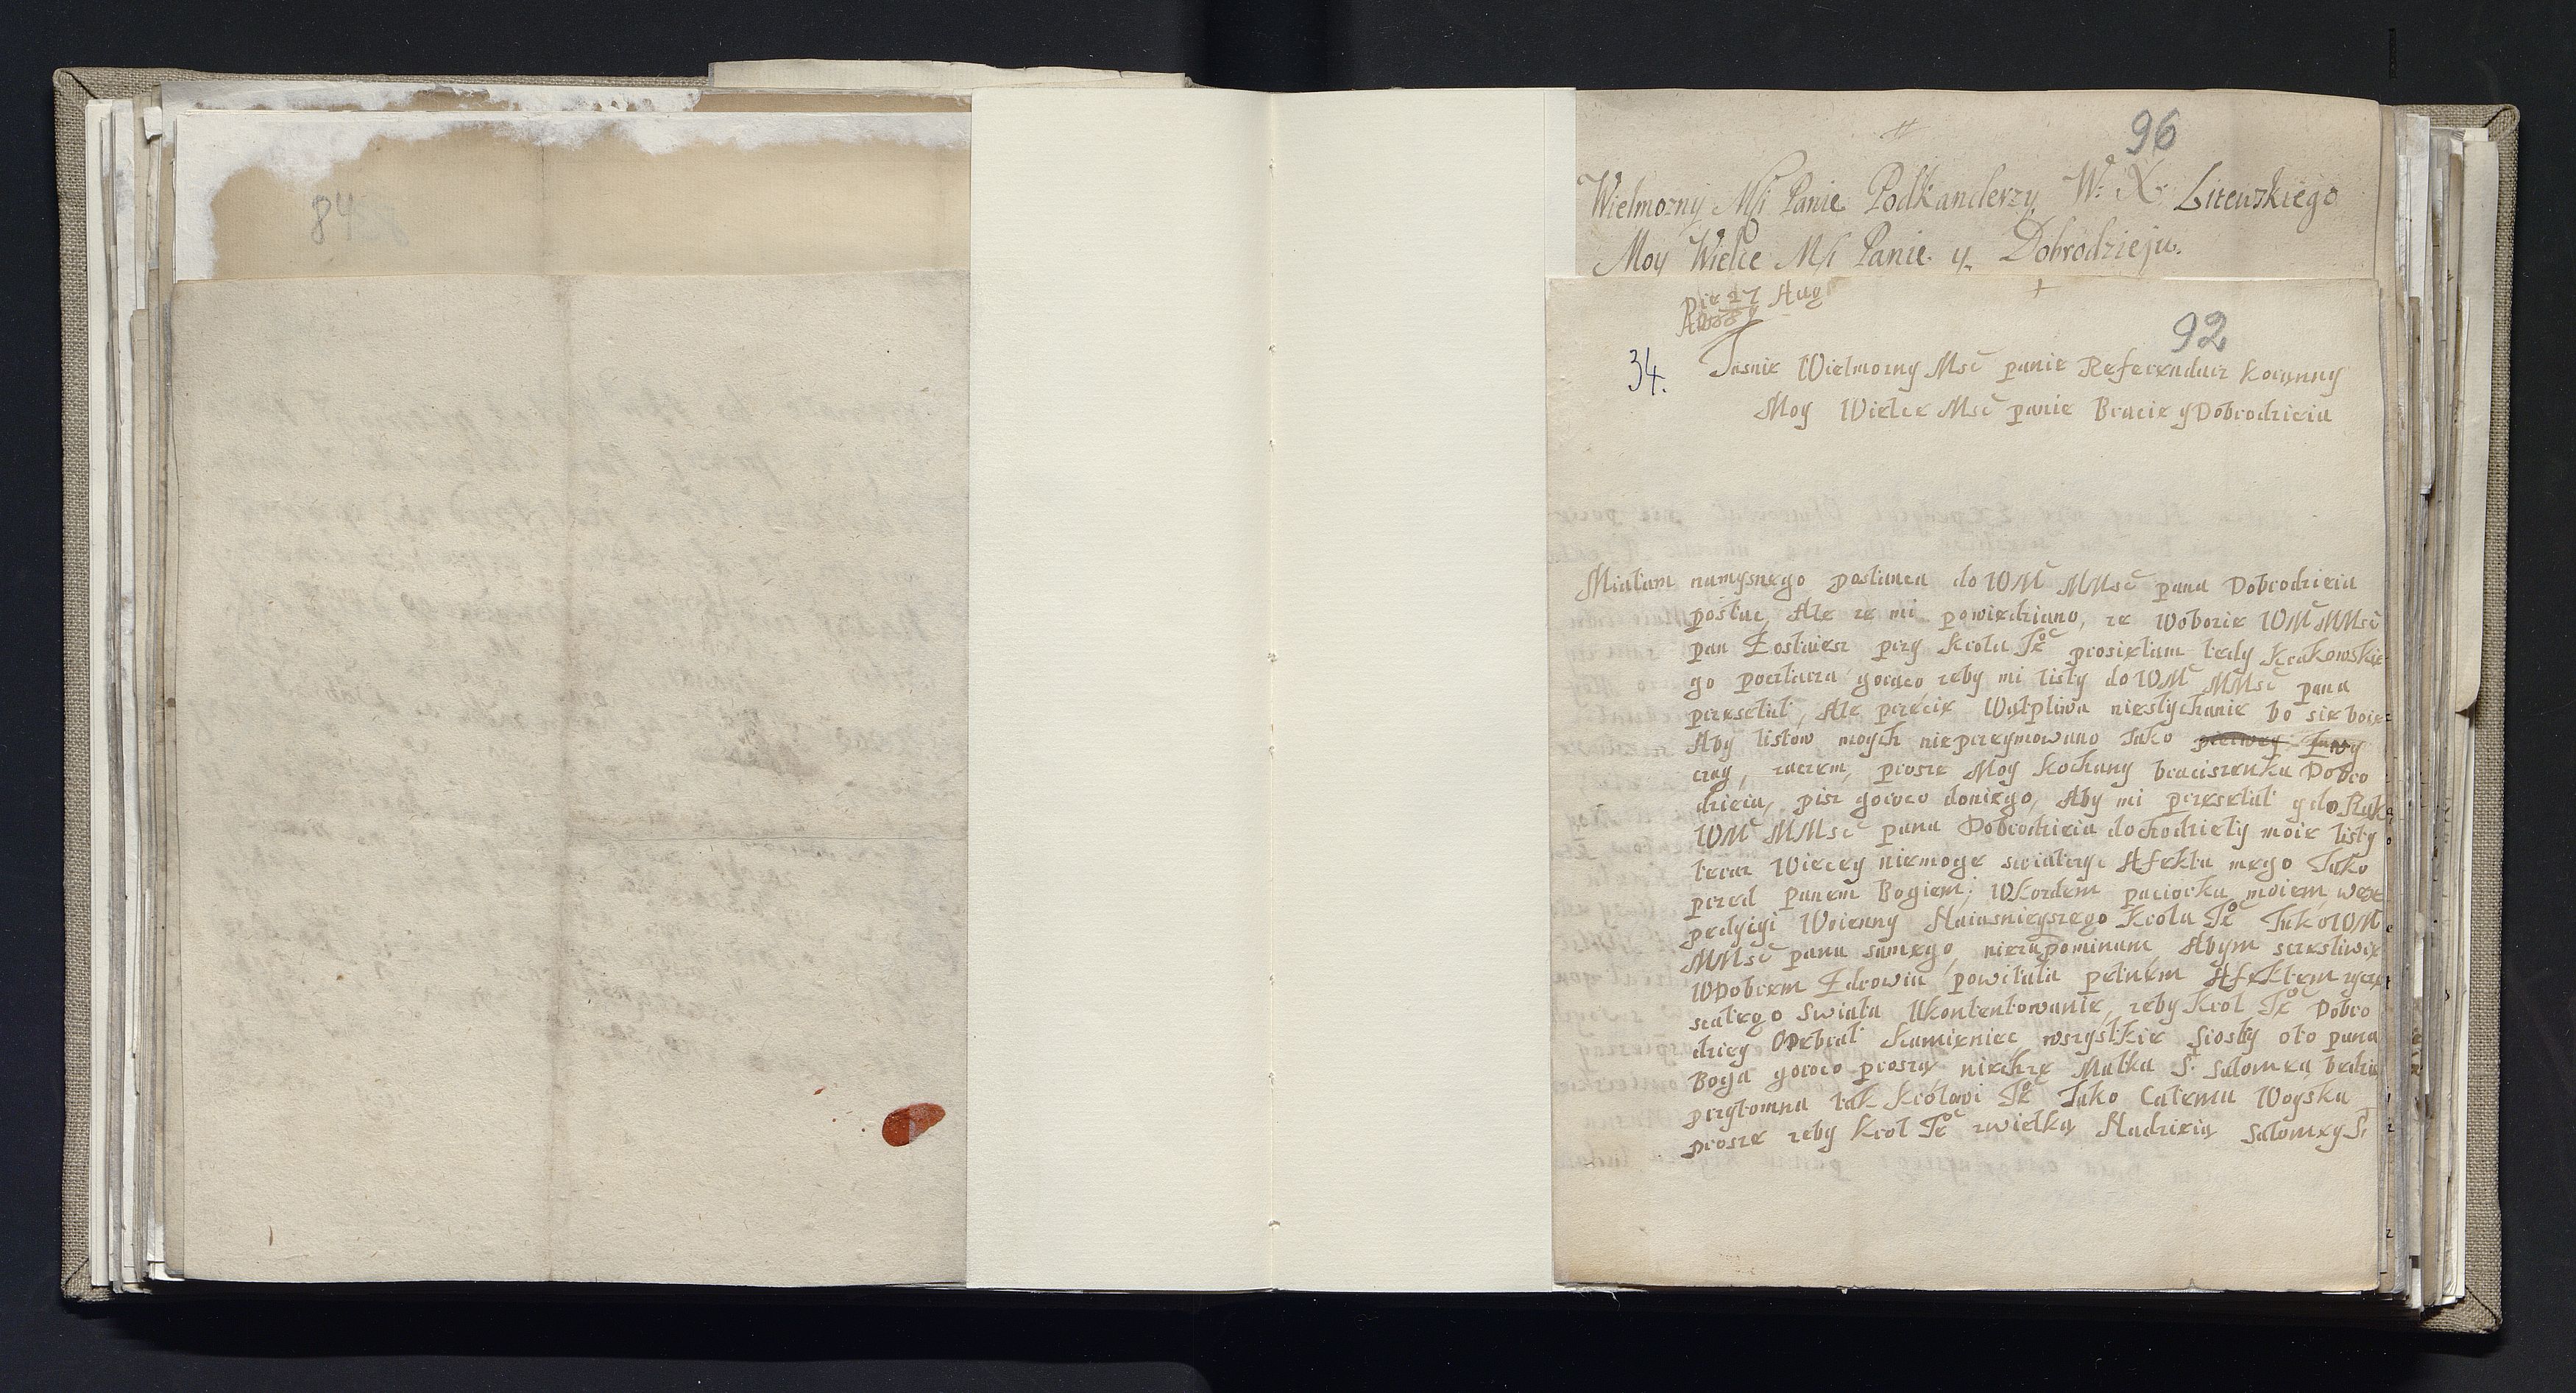 84
96
Wielmozny Msci Panie Podkanclerzy W: X: Litewskiego
Moy Wielce Msci Panie y Dobrodzieju.
Die 27 Aug
92
34.
Jasnie Wielmozny Msc panie Referendarz koronny
Moy Wielce Msc panie Bracie y Dobrodzieia
Mialam namysnego poslanca do WM MMsc pana Dobrodzieia
poslac, Ale ze mi powiedziano, ze Wobozie WM MMsc
pan Zostaiesz przy krolu Je prosielam tedy krakowskie
go poczlarza goraco zeby mi listy do WM MMsc pana
przesełał, Ale przecie Wątpliwa niesłychanie bo sie boie
Aby listow moych nieprzeymowano Jako pierwey Jnny
czay, zaczem, prosze Moy kochany braciszenku Dobro
dzieiu, pisz goroco doniego, Aby mi przesełał y do Ruk
WM MMsc pana Dobrodzieia dochodzieły moie listy
teraz Wiecey niemoge swiatczyc Afektu mego Jako
przed panem Bogiem; Wkozdem paciorku moiem, wex
pedycyi Woienny Naiasnieyszego krola Je Jako WM
MMsc pana samego, niezapominam, Abym sczesliwie
WDobrem Zdrowiu powitała pełnem Afektem zycze
scałego Swiata Ukontentowanie, zeby krol Je Dobro
dziey Odebrał kamieniec wszystkie Siostry oto pana
Boga goroco proszą niechze Matka S: Salomea, bedzie
przytomna tak krolowi Je Jako Całemu Woysku
prosze zeby krol Je zwielką Nadzieią Salomey S: